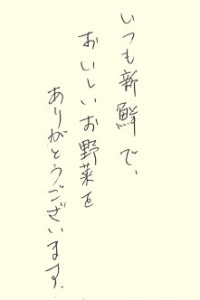 いつも新鮮で、
おいしいお野菜を
ありがとうございます。